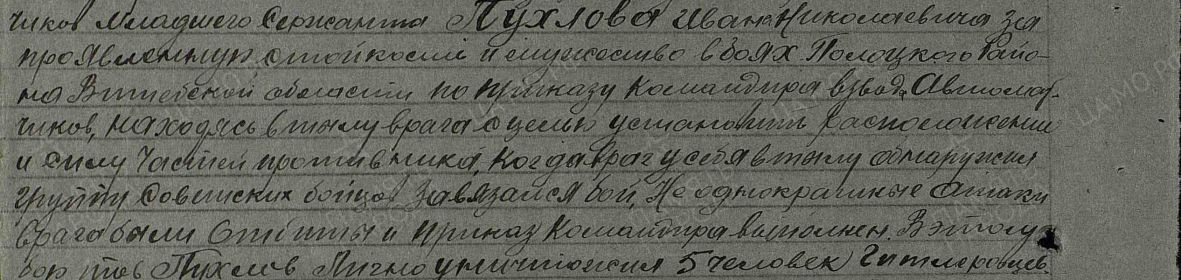 чиков младшего сержанта Пухлова Ивана Николаевича за
проявленную стойкость и мужество в боях Полоцкого Райо-
на Витебской области по приказу Командира взвода Автомат-
чиков, находясь в тылу врага с целью установить расположение
и силу Частей противника, Когда враг у себя в тылу обнаружил
группу Советских бойцов завязался бой, Не однократные атаки
врага были отбиты и приказ Командира выполнен. В этом
бою тов Пухлов Лично уничтожил 5 человек Гитлеровцев